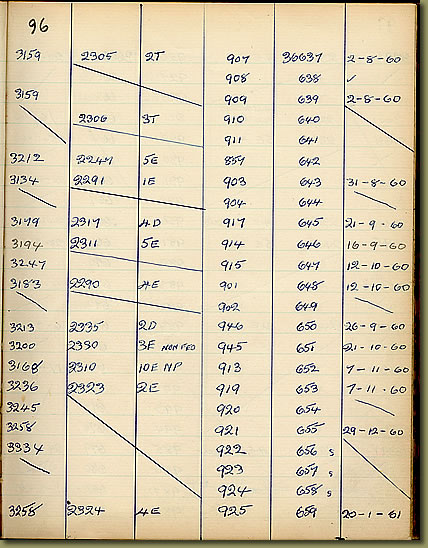 96
3159 2305 2T 907 36637 2-8-60
908 638 ✓
3159 909 639 2-8-60
2306 3T 910 640
911 641
3212 2247 5E 857 642
3134 2291 1E 903 643 31-8-60
904 644
3179 2317 4D 917 645 21-9-60
3194 2311 5E 914 646 16-9-60
3247 915 647 12-10-60
3183 2290 4E 901 648 12-10-60
902 649
3213 2335 2D 946 650 26-9-60
3200 2330 3F NON FED 945 651 21-10-60
3168 2310 10E NP 913 652 7-11-60
3236 2323 2E 919 653 7-11-60
3245 920 654
3258 921 655 29-12-60
3334 922 656 s
923 657 s
924 658 s
3258 2324 4E 925 659 20-1-61